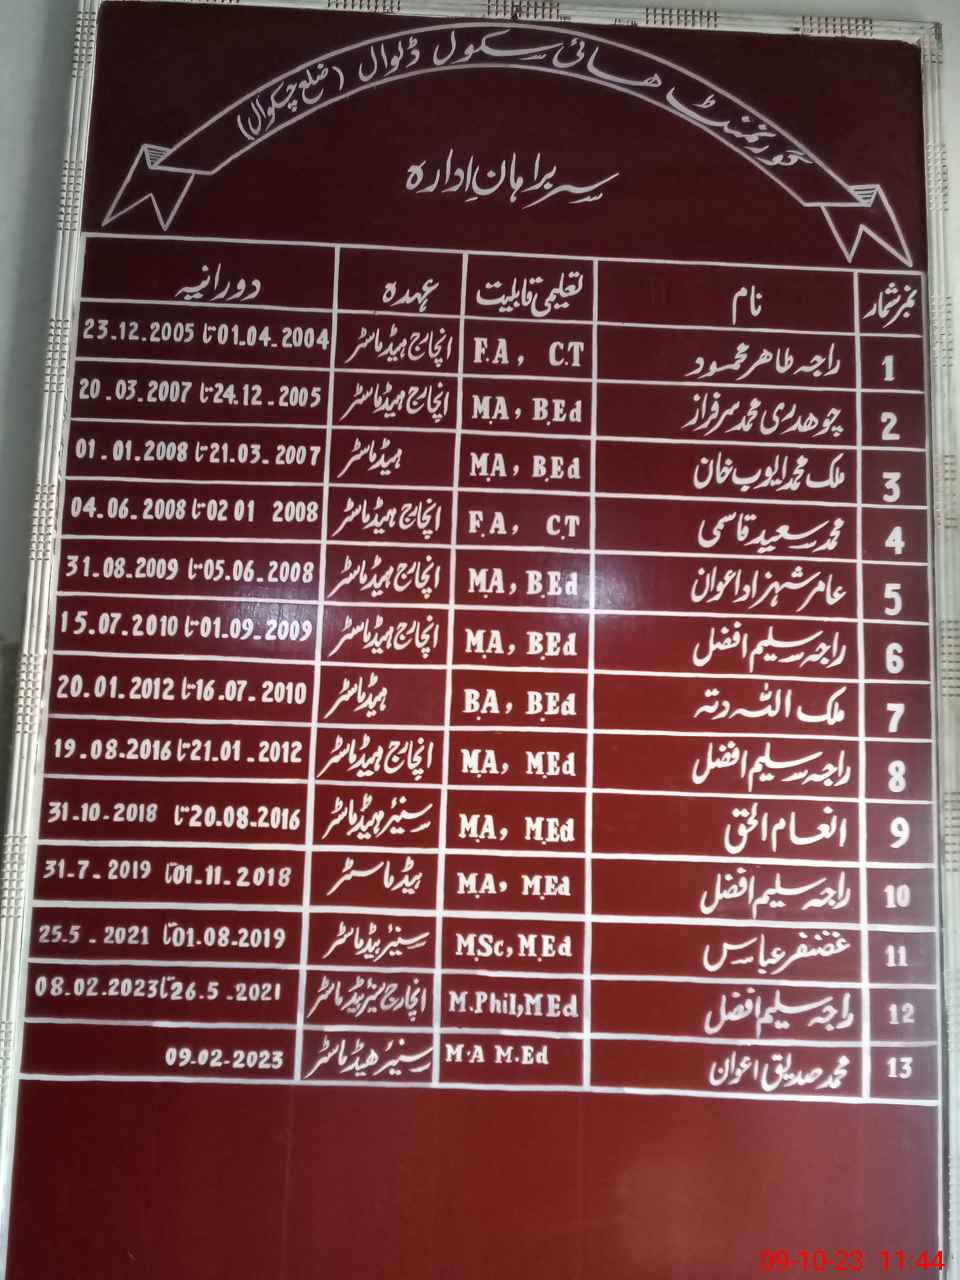 گورنمنٹ ھائی سکول ڈلوال (ضلع چکوال)
سربراہان ادارہ
نمبر شمار نام تعلیمی قابلیت عہدہ دورانیہ
1 راجہ طاہر محمود F.A, C.T انچارج ہیڈماسٹر 01.04.2004 تا 23.12.2005
2 چوھدری محمد سرفراز M.A, B.Ed انچارج ہیڈماسٹر 24.12.2005 تا 20.03.2007
3 ملک محمد ایوب خان M.A, B.Ed ہیڈماسٹر 21.03.2007 تا 01.01.2008
4 محمد سعید قاسمی F.A, C.T انچارج ہیڈماسٹر 02 01 2008 تا 04.06.2008
5 عامر شہزاد اعوان M.A, B.Ed انچارج ہیڈماسٹر 05.06.2008 تا 31.08.2009
6 راجہ سلیم افضل M.A, B.Ed انچارج ہیڈماسٹر 01.09.2009 تا 15.07.2010
7 ملک اللہ دتہ B.A, B.Ed ہیڈماسٹر 16.07.2010 تا 20.01.2012
8 راجہ سلیم افضل M.A, M.Ed انچارج ہیڈماسٹر 21.01.2012 تا 19.08.2016
9 انعام الحق M.A, M.Ed سنیئر ہیڈماسٹر 20.08.2016 تا 31-10-2018
10 راجہ سلیم افضل M.A, M.Ed ہیڈماسٹر 01.11.2018 تا 31-7-2019
11 غضنفر عباس M.Sc, M.Ed سنیئر ہیڈماسٹر 01.08-2019 تا 25.5-2021
12 راجہ سلیم افضل M.Phil, M.Ed انچارج سنیئر ہیڈماسٹر 26.5-2021 تا 08.02.2023
13 محمد صدیق اعوان M.A M.Ed سنیئر ھیڈماسٹر 09.02-2023
09-10-23 11:44